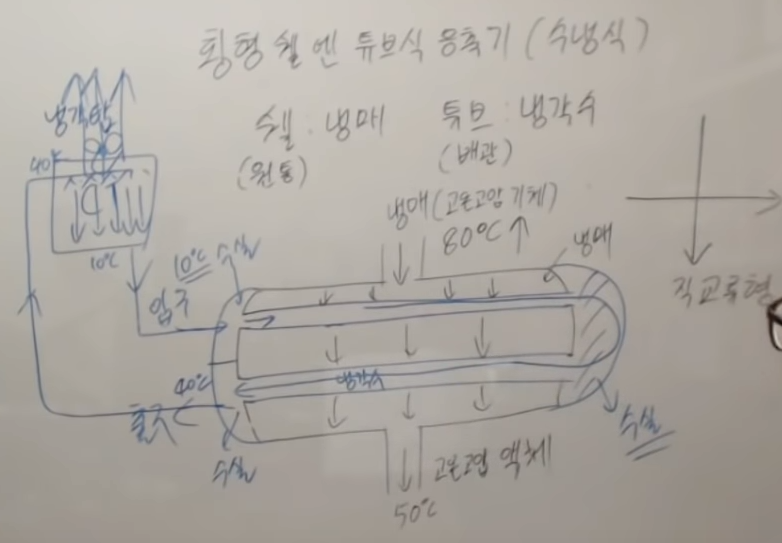 횡형 쉘 엔 튜브식 응축기 (수냉식)
쉘 : 냉매
(원통)
튜브 : 냉각수
(배관)
냉각탑
40
10℃
냉매 (고온고압 기체)
80℃ ↑
냉매
직교류형
10℃ 수실
입구
냉각수
40℃
출구
수실
수실
고온고압 액체
50℃